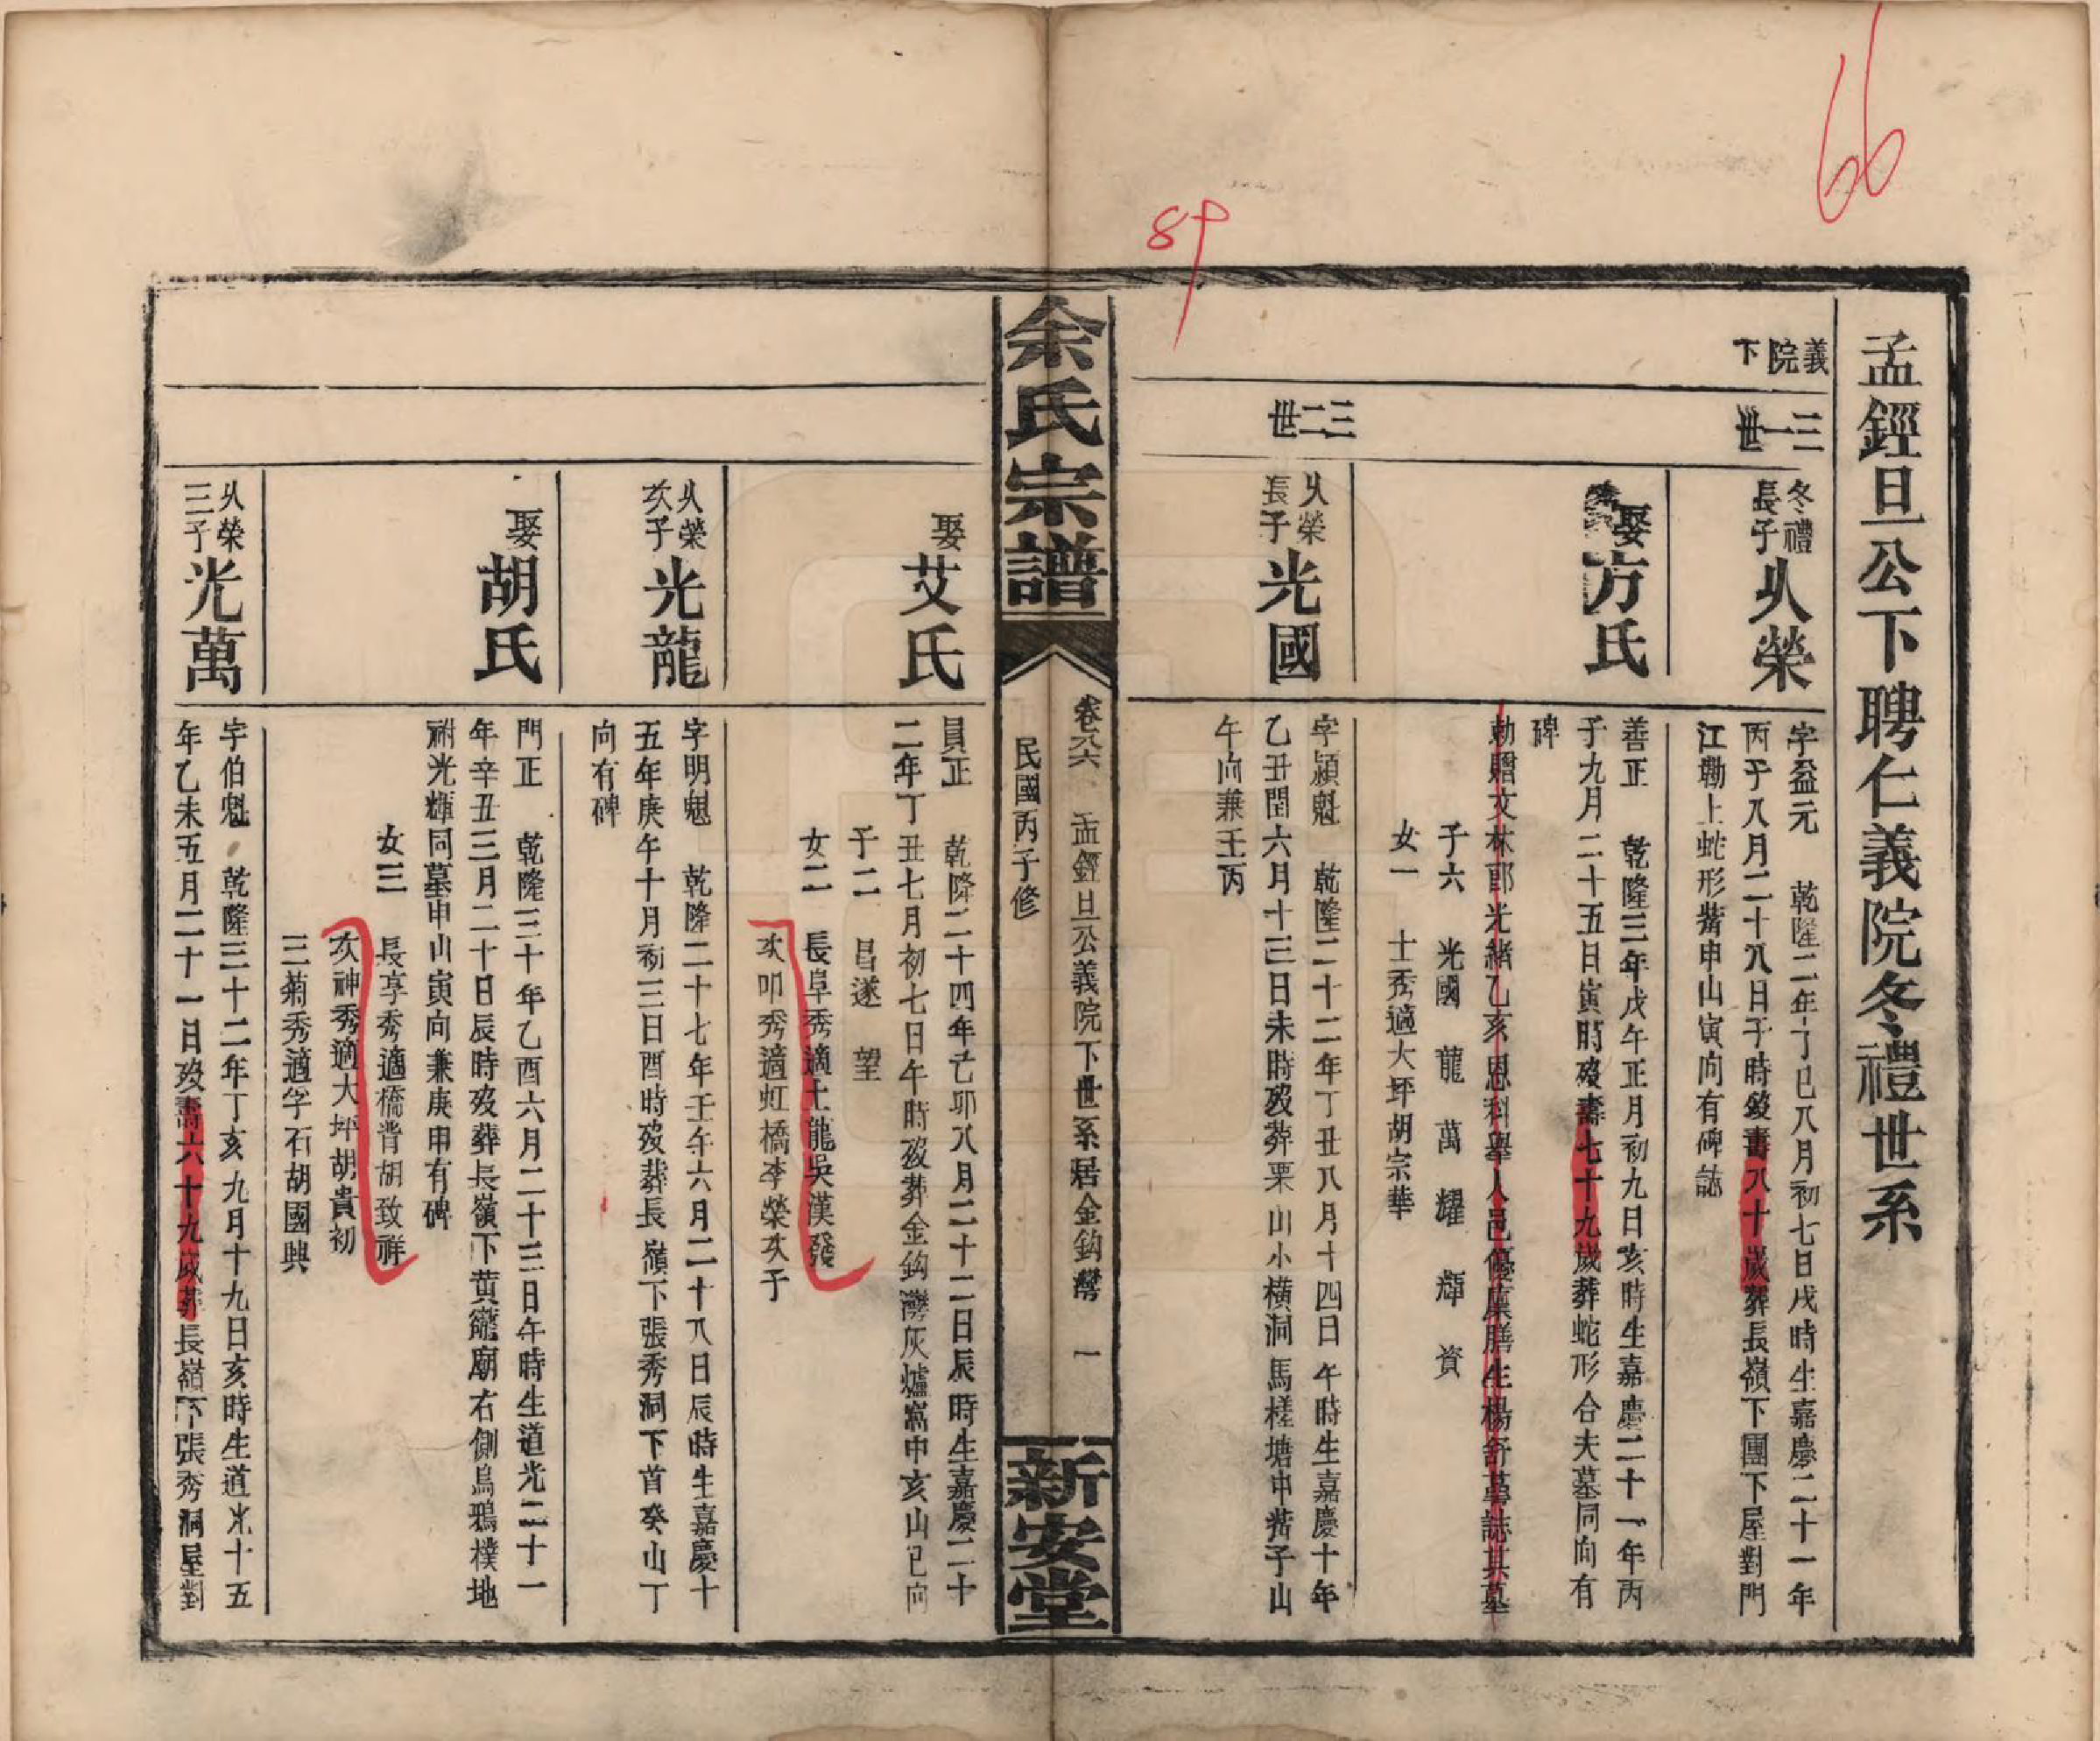 66
89
孟鏗旦公下聘仁義院冬禮世系
義院下
三一世
冬禮長子
久榮
字益元 乾隆二年丁巳八月初七日戌時生嘉慶二十一年
丙子八月二十八日子時歿壽八十歲葬長嶺下團下屋對門
江勘上蛇形觜申山寅向有碑誌
娶
方氏
善正 乾隆三年戊午正月初九日亥時生嘉慶二十一年丙
子九月二十五日寅時歿壽七十九歲葬蛇形合夫墓同向有
碑
勅贈文林郎光緒乙亥恩科舉人邑優廩膳生楊舒蕚誌其墓
子六 光國 龍 萬 耀 輝 資
女一 士秀適大坪胡宗華
三二世
久榮長子
光國
字頴魁 乾隆二十二年丁丑八月十四日午時生嘉慶十年
乙丑閏六月十三日未時歿葬栗山小橫洞馬槎塘中嵴子山
午向兼壬丙
余氏宗譜
卷六 孟鏗旦公義院下世系居金鈎灣 一
民國丙子修
新安堂
娶
艾氏
員正 乾隆二十四年己卯八月二十二日辰時生嘉慶二十
二年丁丑七月初七日午時歿葬金鈎灣灰爐窩中亥山巳向
子二 昌遂 望
女二 長阜秀適土龍吳漢發
次叩秀適虹橋李榮次子
久榮次子
光龍
字明魁 乾隆二十七年壬午六月二十八日辰時生嘉慶十
五年庚午十月初三日酉時歿葬長嶺下張秀洞下首癸山丁
向有碑
娶
胡氏
門正 乾隆三十年乙酉六月二十三日午時生道光二十一
年辛丑三月二十日辰時歿葬長嶺下黃籠廟右側烏鴉樸地
祔光輝同墓申山寅向兼庚申有碑
女三 長享秀適橋背胡致祥
次神秀適大坪胡貴初
三菊秀適孚石胡國興
久榮三子
光萬
字伯魁 乾隆三十二年丁亥九月十九日亥時生道光十五
年乙未五月二十一日歿壽六十九歲葬長嶺下張秀洞屋對